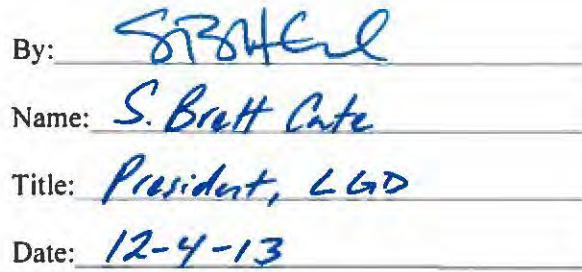 By:
Name: S. Brett Cate
Title: President, LGD
Date: 12-4-13